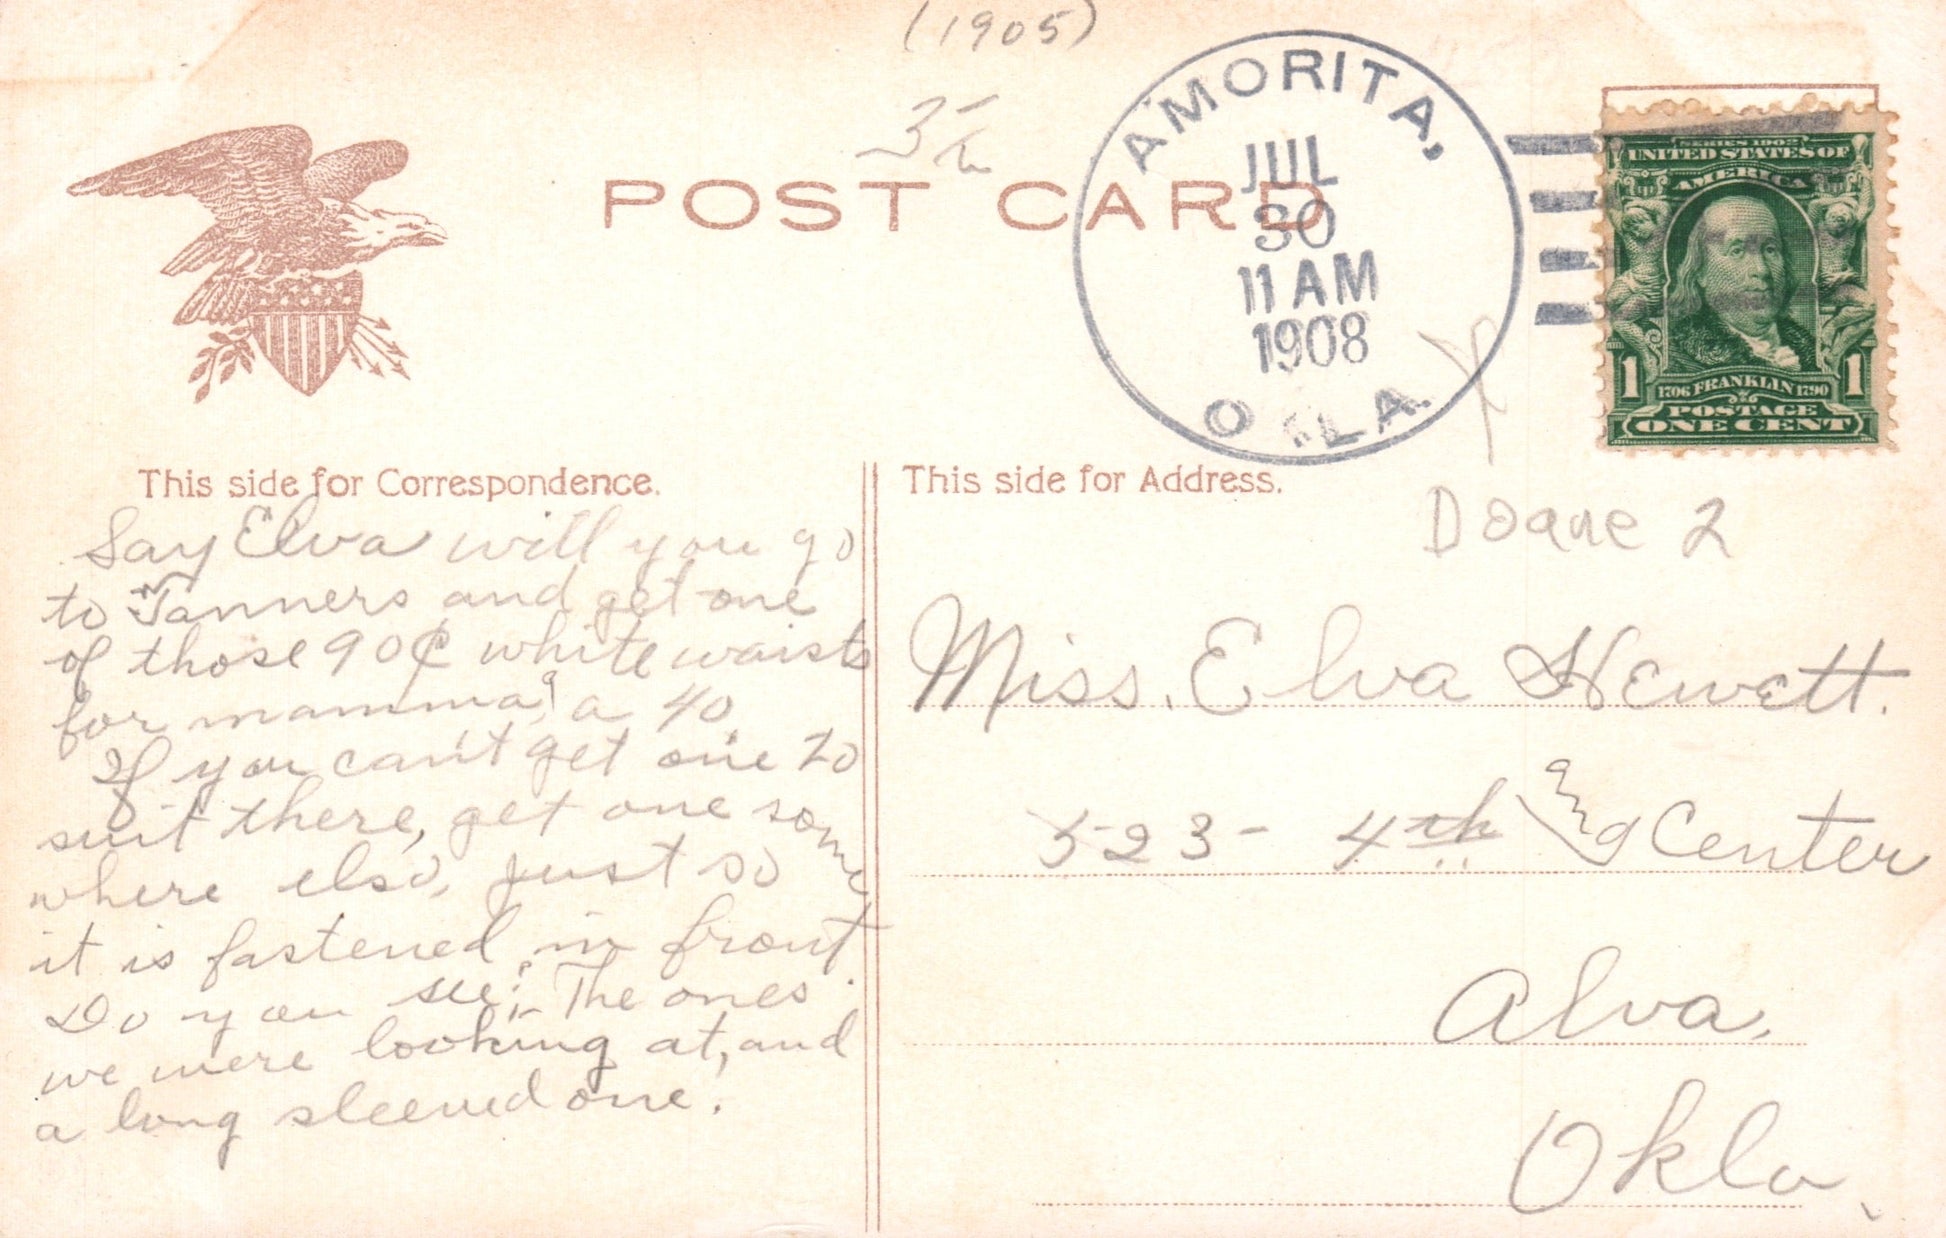 (1905)
AMORITA,
JUL
30
11 AM
1908
OKLA.
SERIES 1902
UNITED STATES OF
AMERICA
1 1
1706 FRANKLIN 1790
POSTAGE
ONE CENT
POST CARD
This side for Correspondence.
Say Elva will you go
to Tanners and get one
of those 90¢ white waists
for mamma, a 40.
If you can't get one to
suit there, get one some
where else, just so
it is fastened in front.
Do you see; The ones
we were looking at, and
a long sleeved one.
This side for Address.
Doane 2
Miss. Elva Hewett.
523- 4th and Center
Alva,
Okla.